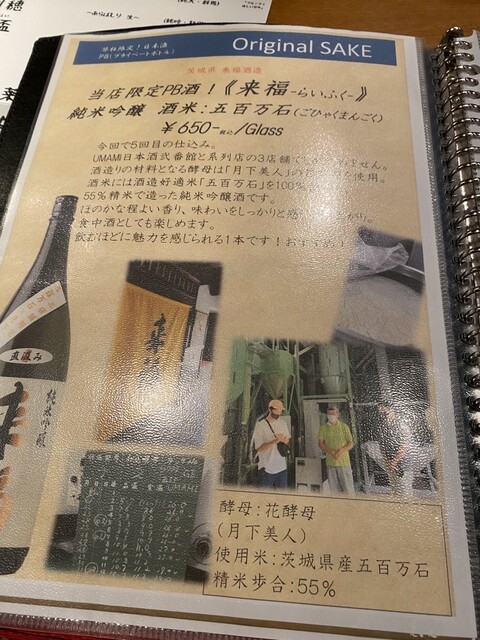 弊社限定!日本酒
PB(プライベートボトル)
Original SAKE
茨城県 来福酒造
当店限定PB酒!《来福-らいふく-》
純米吟醸 酒米:五百万石(ごひゃくまんごく)
¥650-税込/Glass
今回で5回目の仕込み。
UMAMI日本酒弐番館と系列店の3店舗で
酒造りの材料となる酵母は「月下美人」の 使用。
酒米には酒造好適米「五百万石」を100%
55%精米で造った純米吟醸酒です。
ほのかな程よい香り、味わいをしっかりと感
食中酒としても楽しめます。
飲むほどに魅力を感じられる1本です!おすすめ
直汲み
純米吟醸
来福
酵母:花酵母
(月下美人)
使用米:茨城県産五百万石
精米歩合:55%